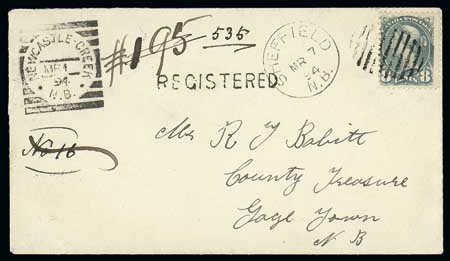 NEWCASTLE-CREEK
MR 1
94
N.B.
#195
535
REGISTERED
SHEFFIELD
MR 7
94
N.B.
8
No 16
Mr R T Babitt
County Treasure
Gage Town
N B